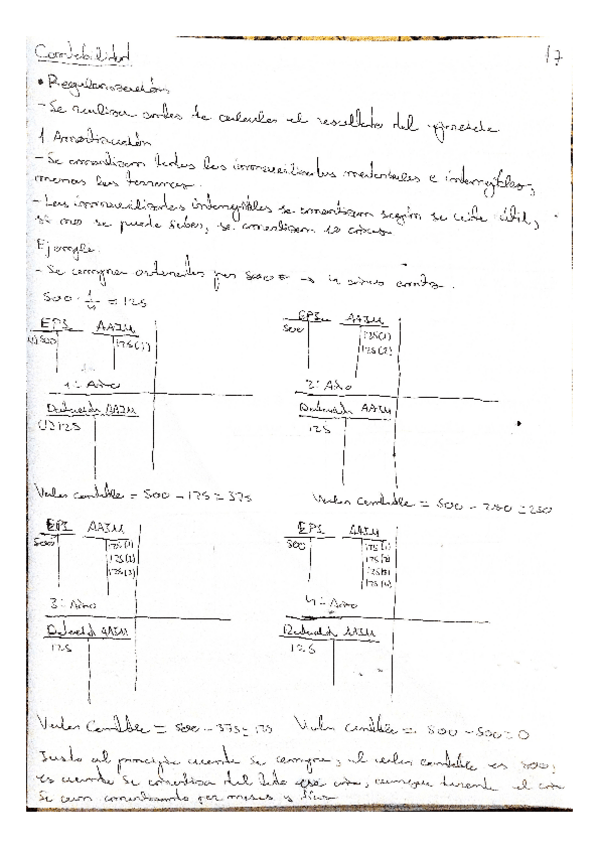 Contabilidad 17
• Regularización
- Se realizan antes de calcular el resultado del ejercicio
1 Amortización
- Se amortizan todos los inmovilizados materiales e intangibles,
menos los terrenos.
- Los inmovilizados intangibles se amortizan según su vida útil,
si no se puede saber, se amortizan 10 años
Ejemplo.
- Se compra ordenador por 500€
500 · 1/4 = 125
EPI AAIM
(1) 500 125(1)
1º Año
Dotación AAIM
(1) 125
EPI AAIM
500 125(1)
125(2)
2º Año
Dotación AAIM
125
Valor contable = 500 - 125 = 375
Valor Contable = 500 - 250 = 250
EPI AAIM
500 125(1)
125(2)
125(3)
3º Año
Dotación AAIM
125
EPI AAIM
500 125(1)
125(2)
125(3)
125(4)
4º Año
Dotación AAIM
125
Valor Contable = 500 - 375 = 125
Valor contable = 500 - 500 = 0
Justo al principio cuando se compra, el valor contable es 500,
es cuando se amortiza del todo ese año, aunque durante el año
se van amortizando por meses y días